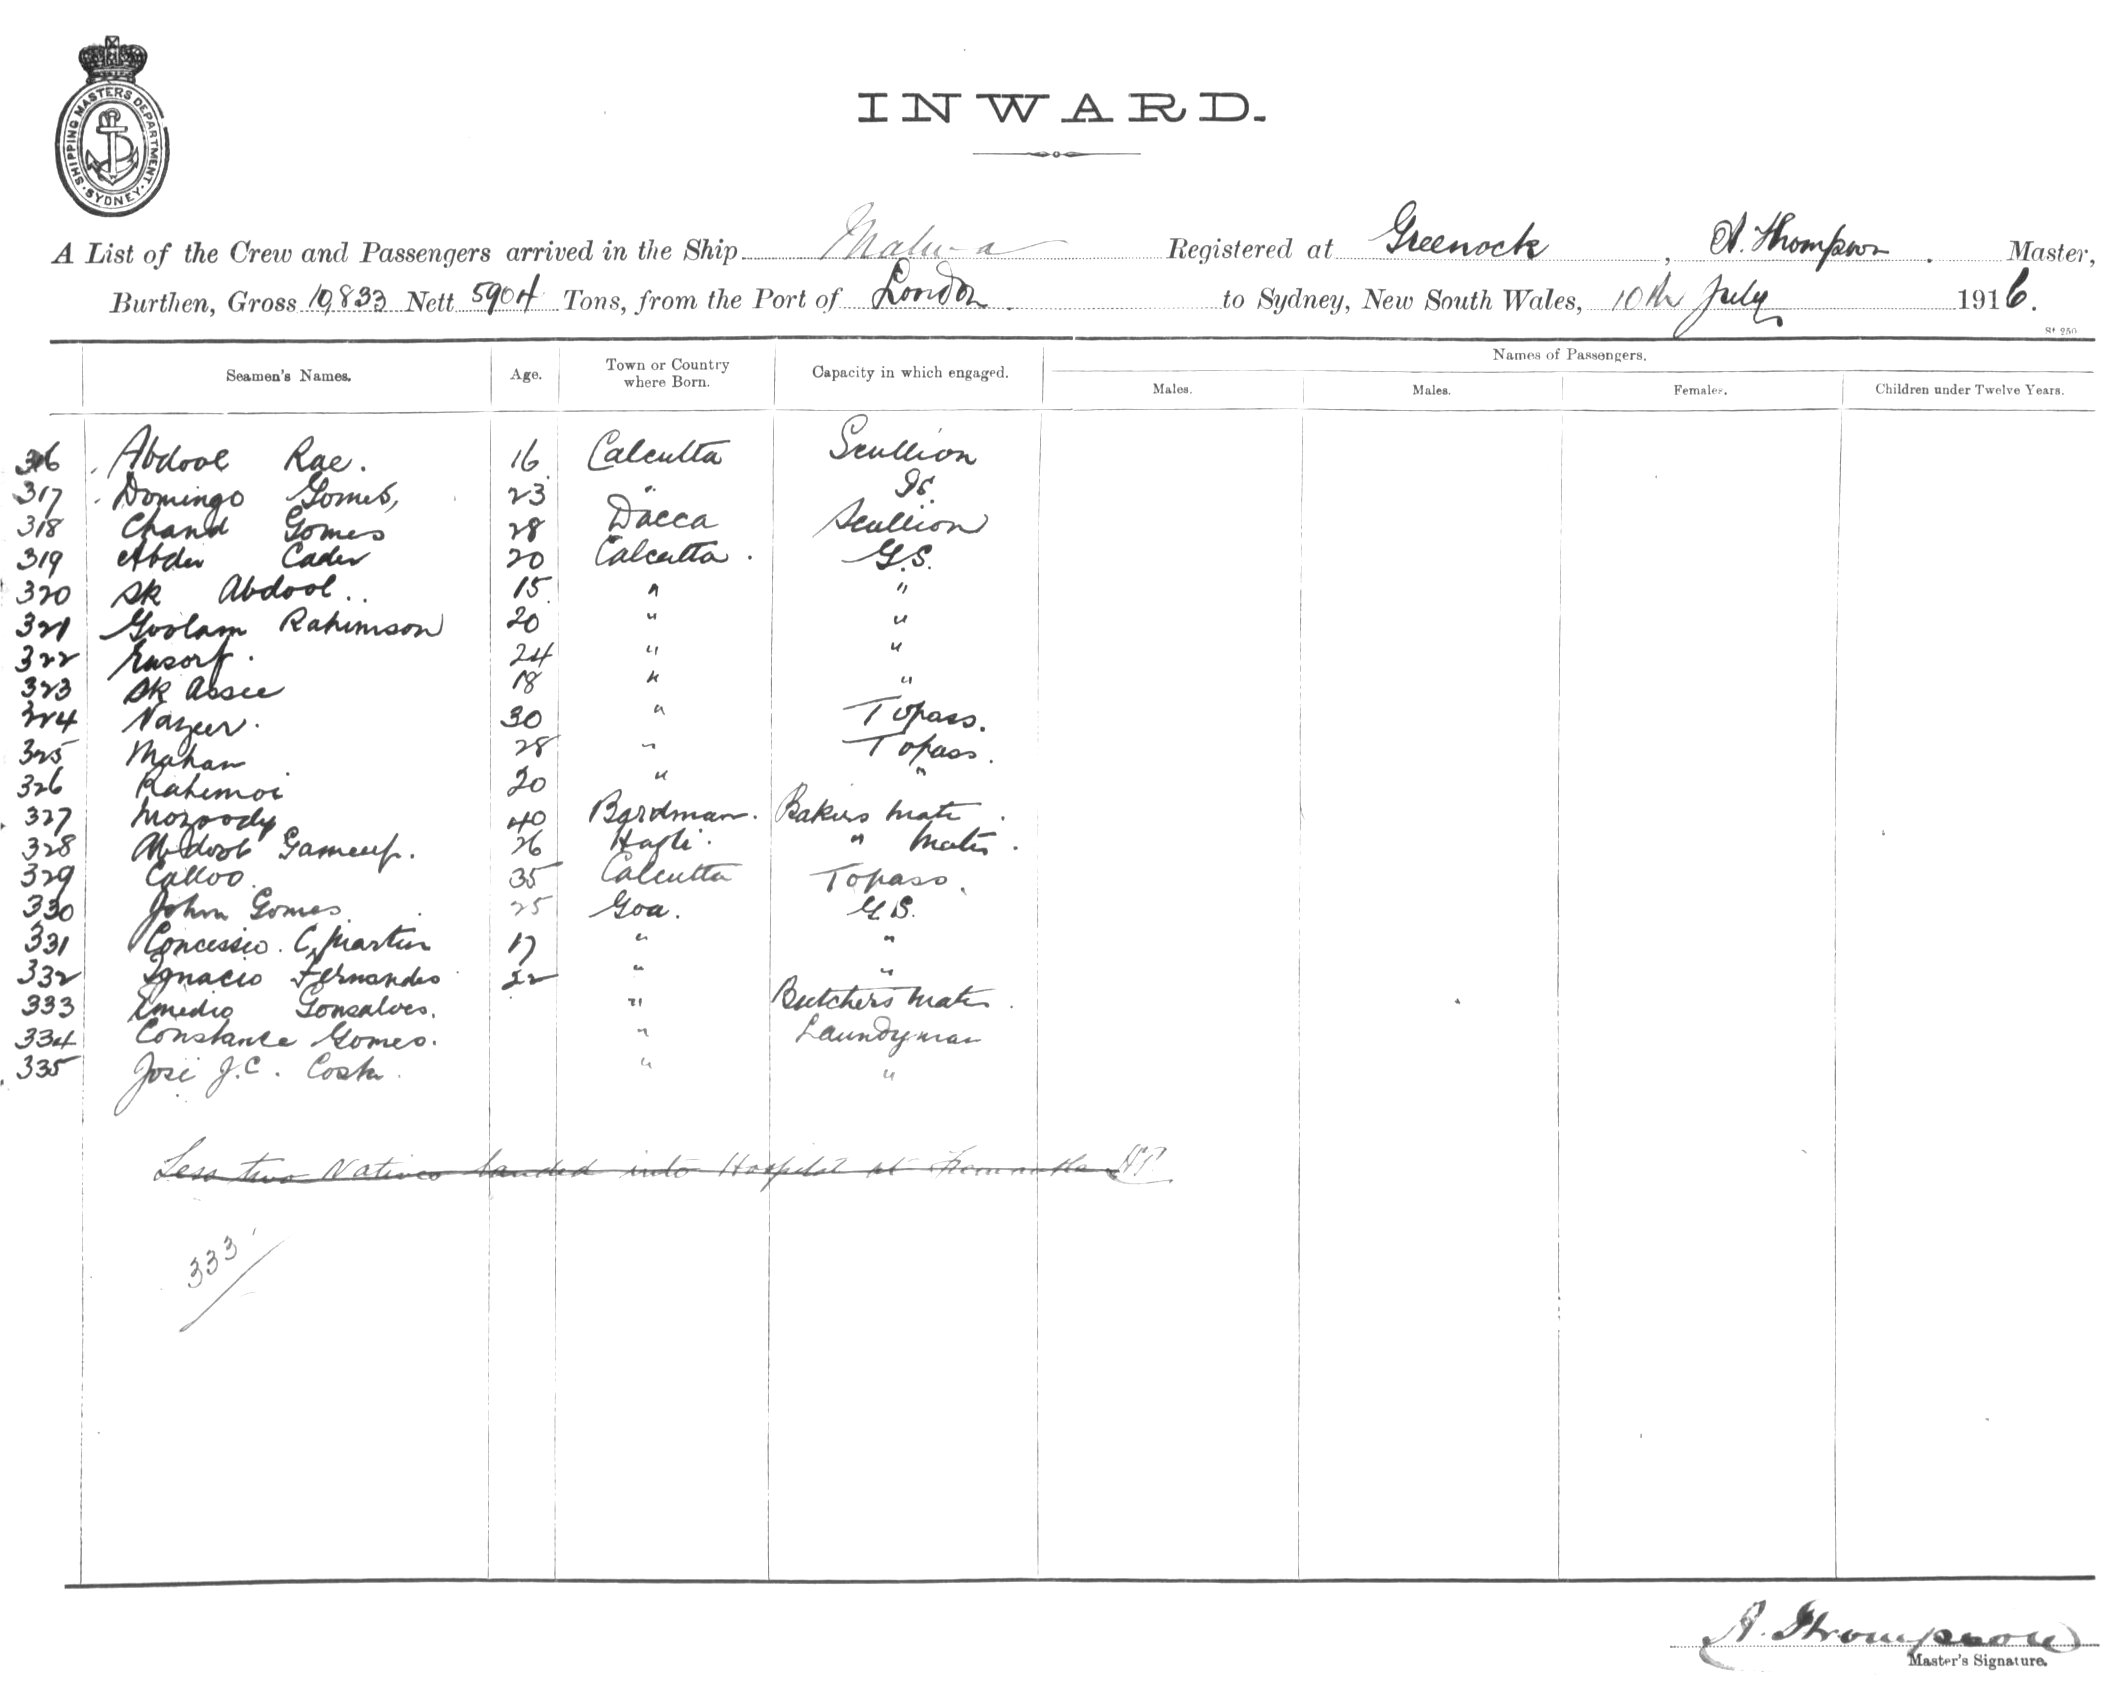 SHIPPING MASTERS DEPARTMENT. SYDNEY
INWARD.
A List of the Crew and Passengers arrived in the Ship Malwa Registered at Greenock, A. Thompson. Master,
Burthen, Gross 10,833 Nett 5904 Tons, from the Port of London. to Sydney, New South Wales, 10th July 1916.
St 250
Seamen's Names. Age. Town or Country where Born. Capacity in which engaged. Names of Passengers.
Males. Males. Females. Children under Twelve Years.
316 Abdool Rae. 16 Calcutta Scullion
317 Domingo Gomes, 23 "
318 Chand Gomes 28 Dacca Scullion
319 Abder Cader 20 Calcutta. G.S.
320 Sk Abdool.. 15 " "
321 Goolam Rahimson 20 " "
322 24 " "
323 Sk Assee 18 " "
324 Nazeer. 30 " Topass.
325 Mahan 28 " Topass.
326 Rahimoi 20 " "
327 Mozoody 40 Bardman. Bakers Mate.
328 Abdool 26 " Mate.
329 Calloo. 35 Calcutta Topass.
330 John Gomes. 25 Goa. G.S.
331 Concessio. C, Martin 17 " "
332 Ignacio Fernandes 22 " "
333 Gonsalves. " Butchers Mate.
334 Constance Gomes. " Laundyman
335 José J.C. Costa. " "
Less two Natives landed into Hospital at Fremantle AT.
333
A. Thompson
Master's Signature.